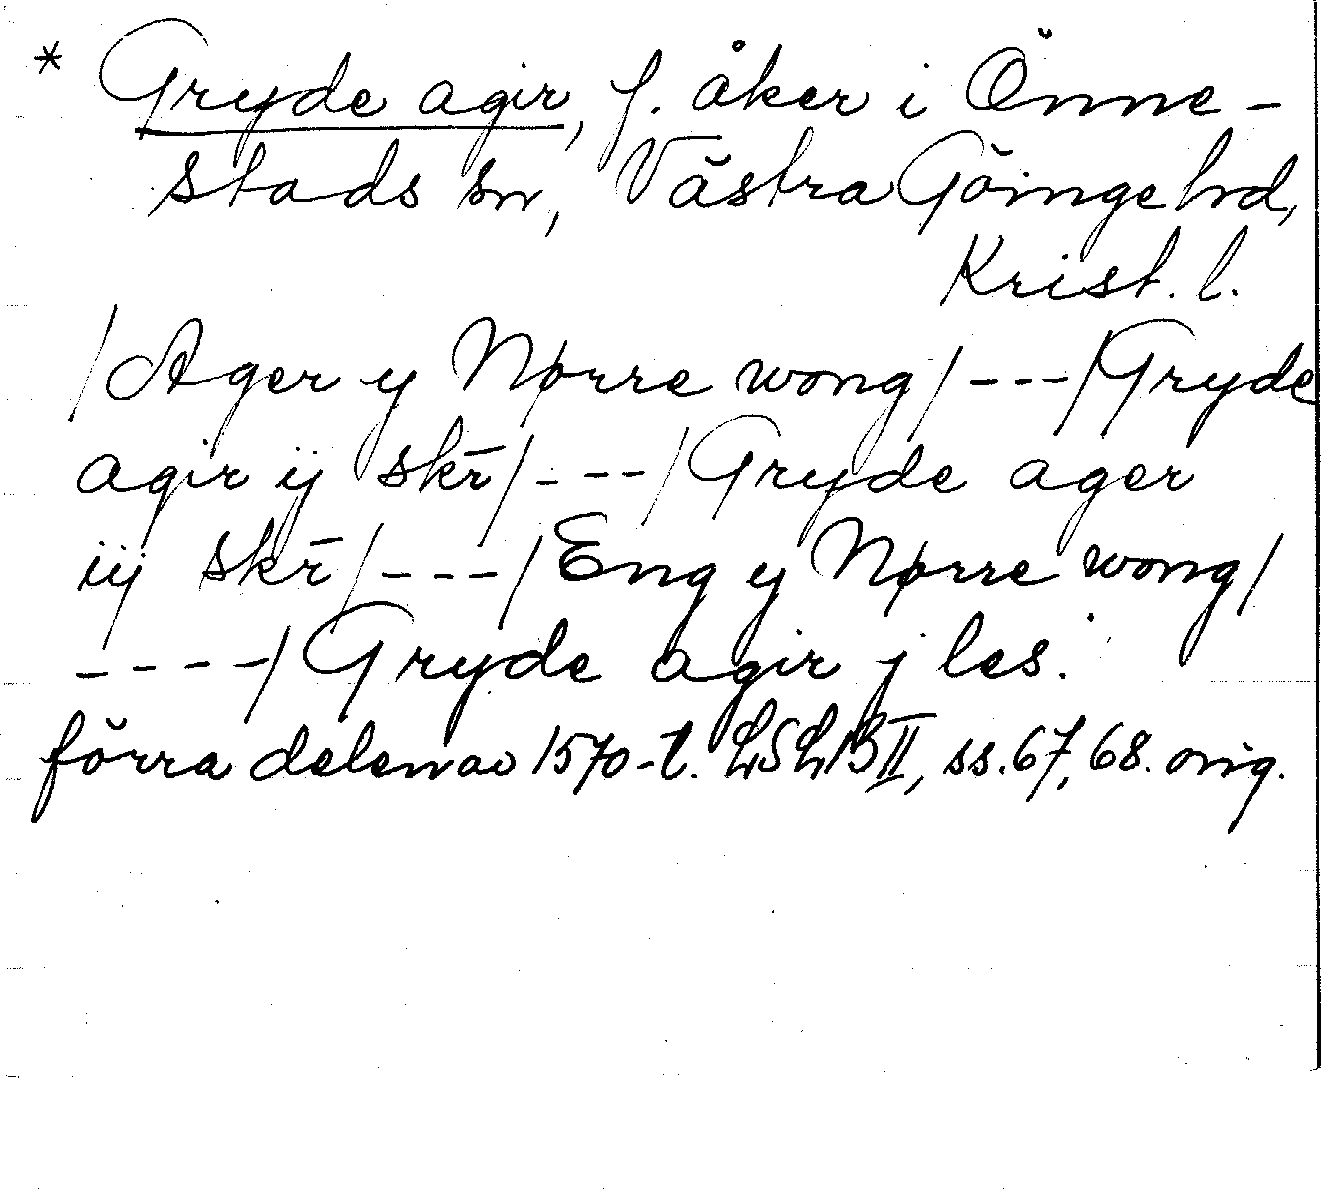 * Gryde agir, f. åker i Önne-
stads sn, Västra Göinge hd,
Krist. l.
/Ager y Nørre wong/---/Gryde
agir ij skr̄/---/Gryde ager
iij skr̄/---/Eng y Nørre wong/
----/Gryde agir j les.
förra delen av 1570-t. LSLB II, ss. 67, 68. orig.